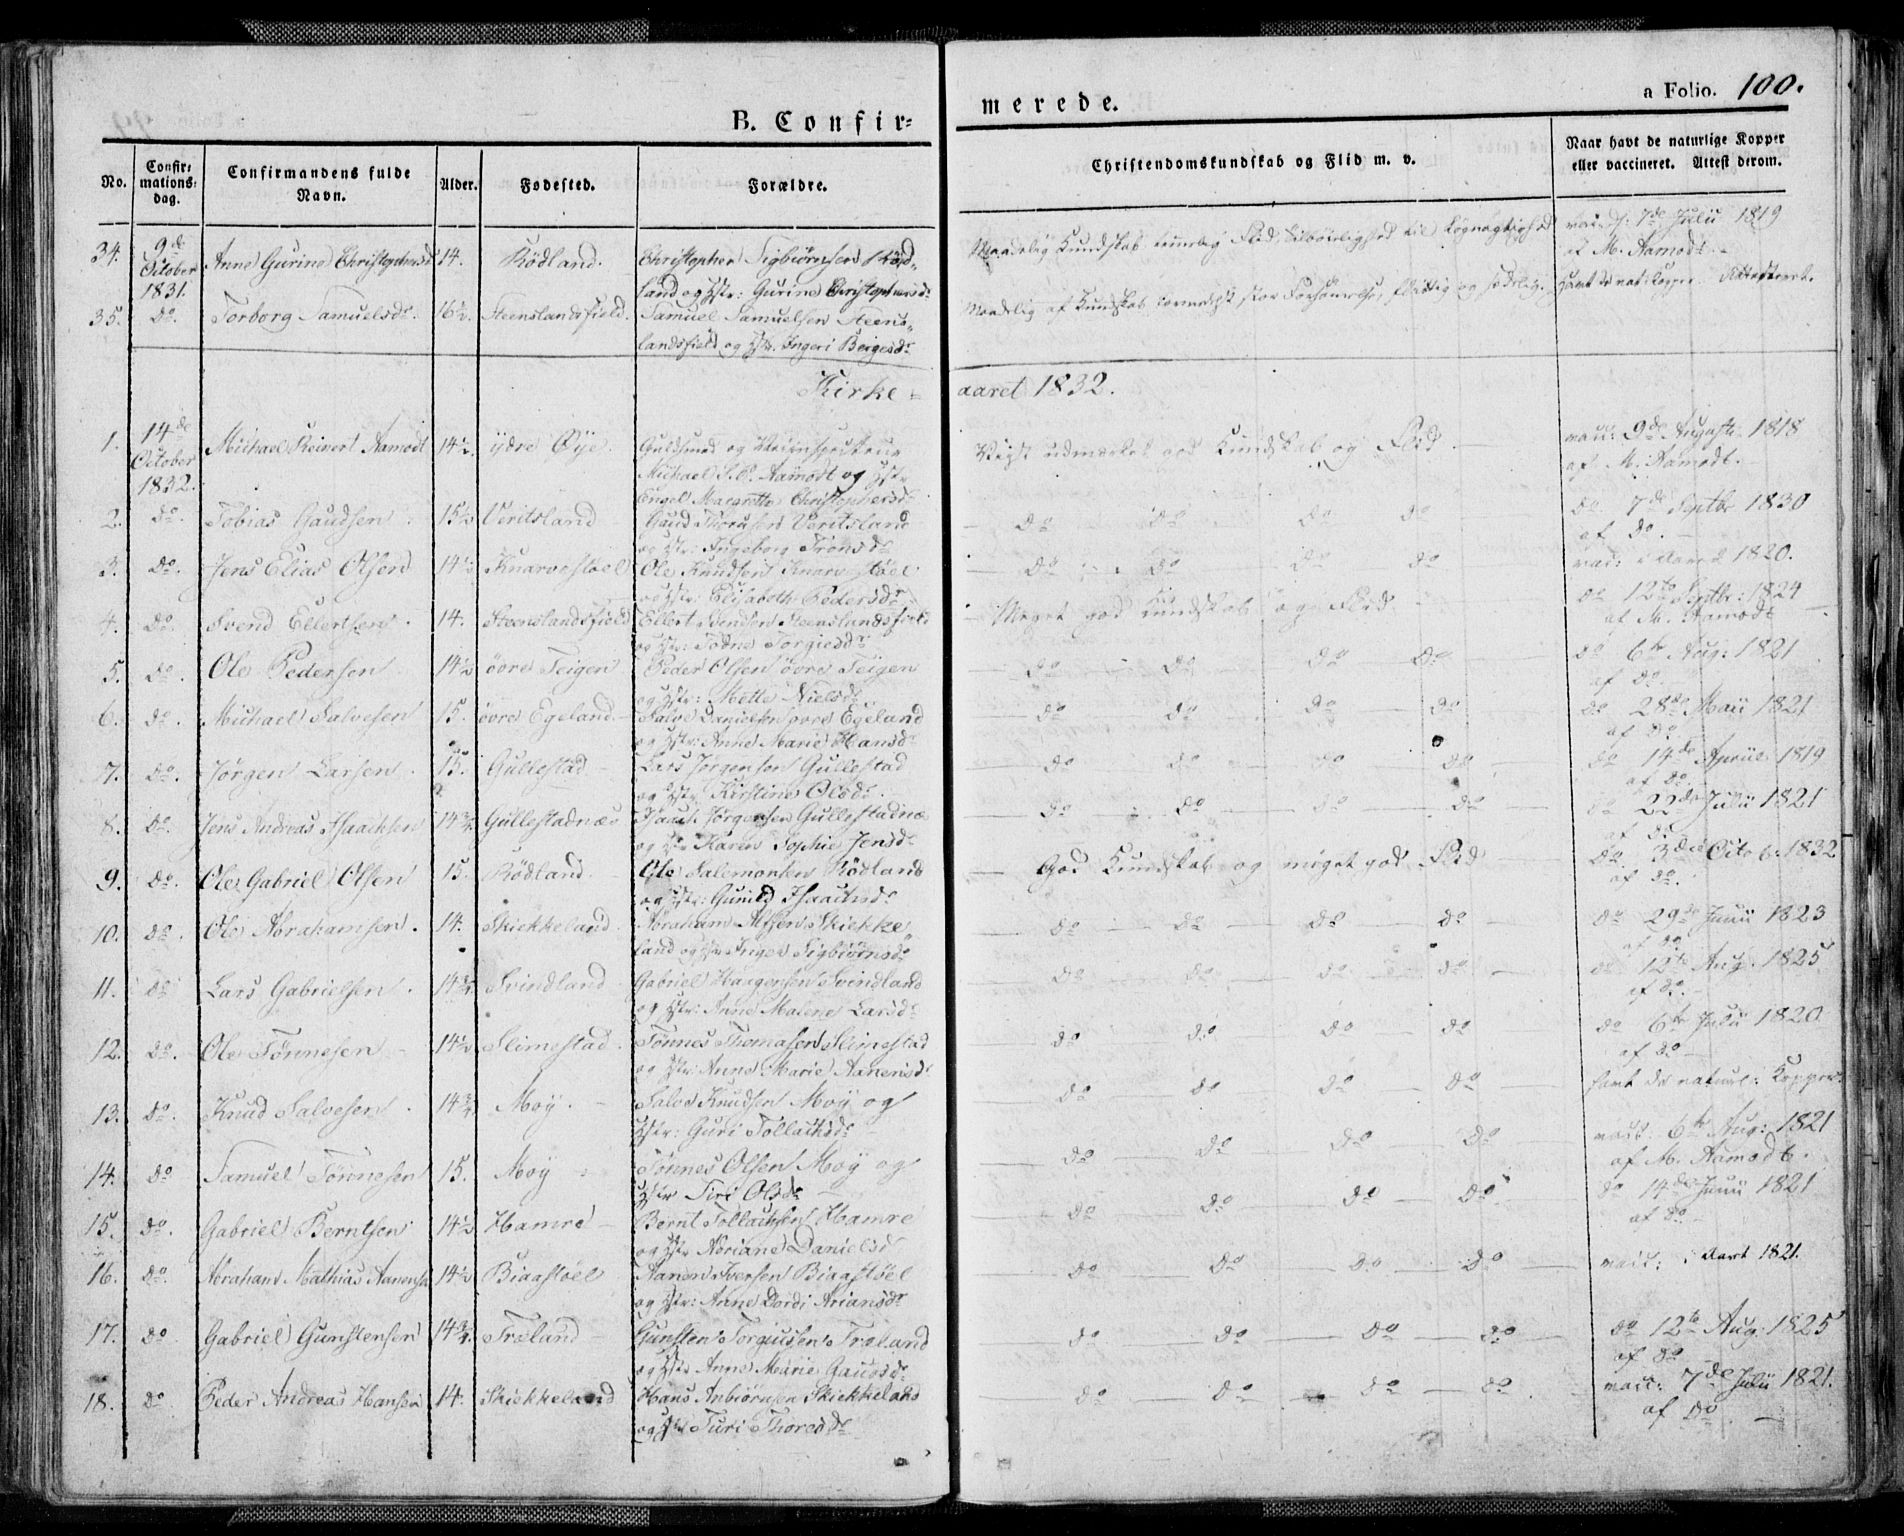 B. Confir=
merede.
a Folio. 100.
No.
Confir=
mations=
dag.
Confirmandens fulde
Navn.
Alder.
Fødested.
Forældre.
Christendomskundskab og Flid m. v.
Naar havt de naturlige Kopper
eller vaccineret. Attest derom.
34. 9de October 1831. Anne Gurine Christophersd 14. Rödland. Christopher Sigbiörnsen Röd„
land og Hstr: Gurine Christophersd:
Maadelig Kundskab
vac: d: 7de Julii 1819
af M. Aamodt.
35. Do. Torborg Samuelsdr. 16½. Steenslandsfield. Samuel Samuelsen Steens„
landsfield og Hstr. Ingeri Beigesdr
Maadelig af Kundskab
havt de nat: Kopper. Attesteret.
Kirke=
aaret 1832.
1. 14de October 1832. Michael Reinert Aamodt 14½. ydre Øye. Guldsmed og
Michael Aamodt og Hstr
Engel Margrette Christophersdr
udmærket god Kundskab og Flid.
vacc: 9de Augusti 1818
af M. Aamodt.
2. Do. Tobias Gaudsen 15½ Veritsland Gaud Veritsland
og Hstr: Ingeborg Tronsdr
Do Do Do Do
Do 7de Septbr 1830
af Do.
3. Do. Jens Elias Olsen 14½ Knarvestöel Ole Knudsen Knarvestöel
og Hstr: Elisabeth Pedersdr
Do Do Do Do
vac: i Aaret 1820.
4. Do. Svend Ellertsen. 14. Steenslandsfield Ellert Svendsen Steenslandsfield
og Hstr: Todne Torgiesdr
Meget god Kundskab og Flid
Do 12te Septbr: 1824
af M. Aamodt
5. Do. Ole Pedersen 14½ övre Teigen Peder Olsen övre Teigen
og Hstr: Mette Nielsdr
Do Do Do Do
Do 6te Aug: 1821
af Do
6. Do. Michael Salvesen 15. övre Egeland. Salve Danielsen övre Egeland
og Hstr: Anne Marie Hansdr
Do Do Do Do
Do 28de Maii 1821
af Do
7. Do. Jörgen Larsen. 15. Gullestad Lars Jörgensen Gullestad
og Hstr Kirstine Olsdr.
Do Do Do Do
Do 14de Aprile 1819
af Do
8. Do. Jens Andreas Isaachsen 14¾ Gullestadnæs Isaach Jörgensen Gullestadnæs
og Hstr Karen Sophie Jensdr
Do Do Do Do
Do 22de Julii 1821
af Do
9. Do. Ole Gabriel Olsen 15. Rödland. Ole Salemonsen Rödland
og Hstr: Gunild Isaachsdr
God Kundskab og meget god Flid
Do. 3die Octob: 1832
af Do.
10. Do. Ole Abrahamsen. 14. Skiekkeland. Abraham Skiekke„
land og Hstr Inger Sigbiörnsdr
Do Do Do Do
Do 29de Junii 1823
af Do
11. Do Lars Gabrielsen. 14¾ Svindland. Gabriel Svindland
og Hstr: Anne Malene Larsdr
Do Do Do Do
Do 12te Aug. 1825
af Do.
12. Do. Ole Tönnesen 14½ Slimestad. Tönnes Thomasen Slimestad
og Hstr: Anne Marie Aanensdr
Do Do Do Do
Do 6te Julii 1820
af Do
13. Do. Knud Salvesen. 14¾ Moÿ. Salve Knudsen Moÿ og
Hstr: Guri Tollachsdr
Do Do Do Do
havt de naturl: Kopper.
14. Do Samuel Tönnesen 15. Moÿ Tönnes Olsen Moÿ og
Hstr Siri Olsdr
Do Do Do Do
vacc: 6te Aug: 1821
af M. Aamodt.
15. Do. Gabriel Berntsen 14½ Hamre Bernt Tollachsen Hamre
og Hstr Adriane Danielsd
Do Do Do Do
Do 14de Junii 1821
af Do
16. Do. Abraham Mathias Aanensen 14½ Biaastöel Aanen Iversen Biaastöel
og Hstr: Anne Dordi Ariansdr
Do Do Do Do
vacc: i Aaret 1821.
17. Do Gabriel Gunstensen 14¾ Træland Gunsten Torgiusen Træland
og Hstr Anne Marie Gaudsdr
Do Do Do Do
Do 12te Aug: 1825
af Do
18. Do Peder Andreas Hansen 14. Skiekkeland Hans Anbiörnsen Skiekkeland
og Hstr Turi Thoresdr
Do Do Do Do
vacc: 7de Julii 1821.
af Do.